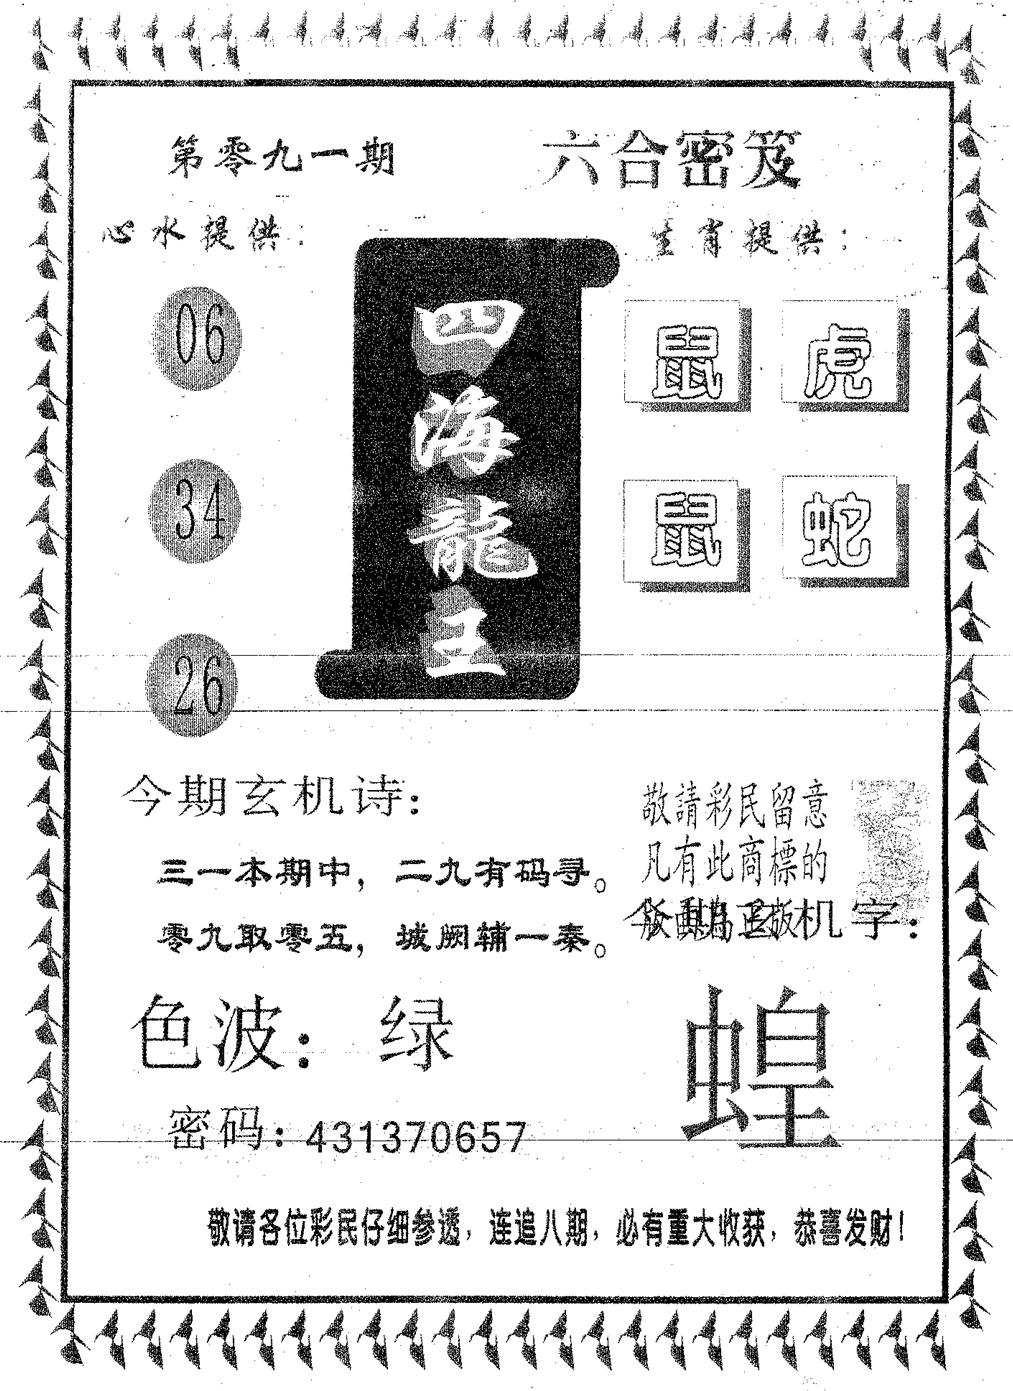 第零九一期
六合密笈
心水提供：
生肖提供：
06
34
26
四海龍王
鼠 虎
鼠 蛇
今期玄机诗：
三一本期中，二九有码寻。
零九取零五，城阙辅一秦。
敬請彩民留意
凡有此商標的
版面為正版
今期玄机字：
蝗
色波：绿
密码：431370657
敬请各位彩民仔细参透，连追八期，必有重大收获，恭喜发财！